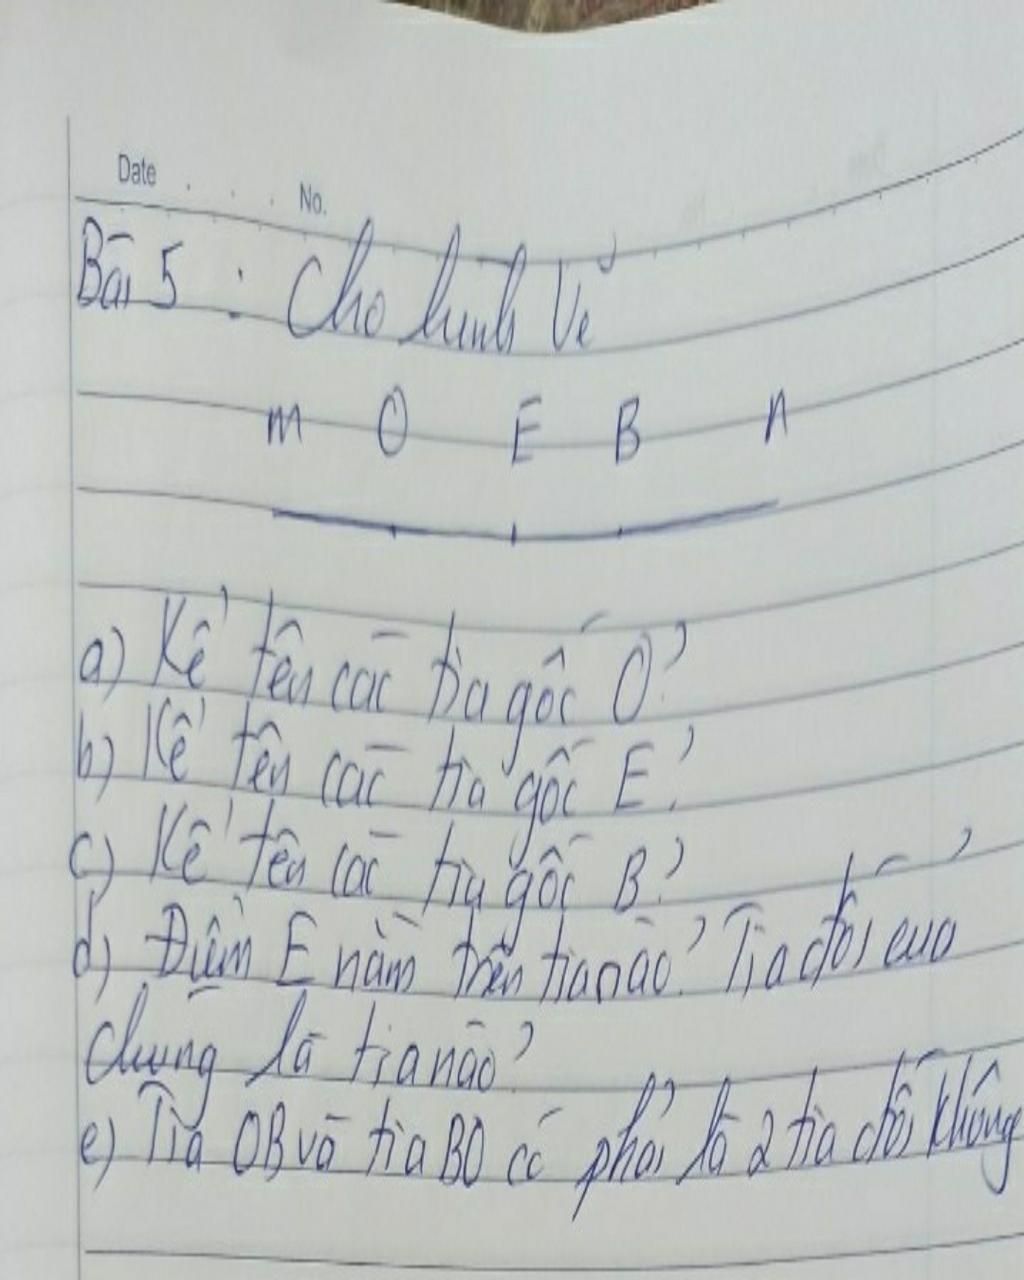 Date No.
Bài 5 : Cho hình vẽ
m O E B n
a) Kể tên các tia gốc O?
b) Kể tên các tia gốc E?
c) Kể tên các tia gốc B?
d) Điểm E nằm trên tia nào? Tia đối của
chúng là tia nào?
e) Tia OB và tia BO có phải là 2 tia đối không